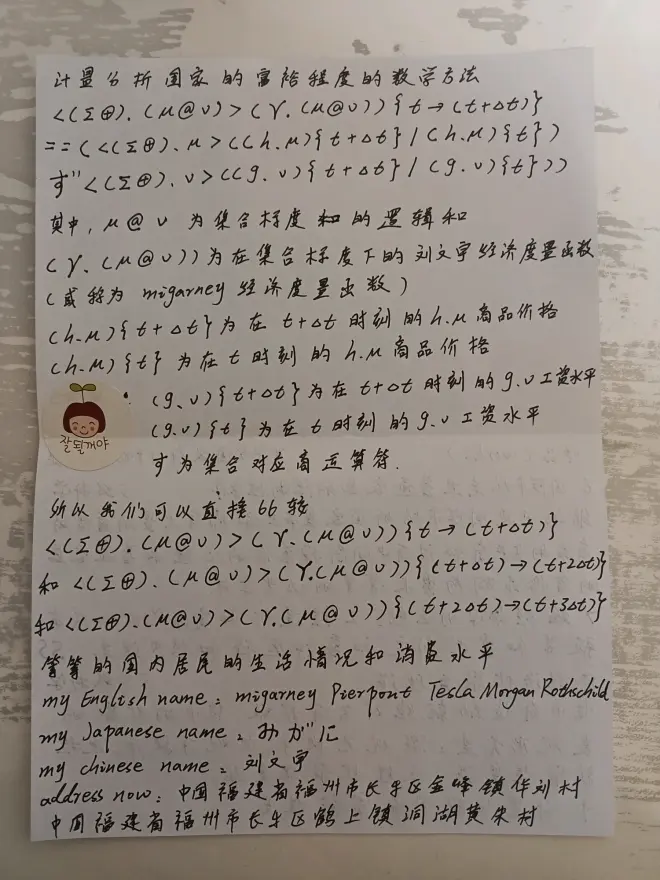 计量分析国家的富裕程度的数学方法
<(Σ⊕).(μ@υ)>(γ.(μ@υ)){t→(t+Δt)}
==(<(Σ⊕).μ>((h.μ){t+Δt}/(h.μ){t})
す"<(Σ⊕).υ>((g.υ){t+Δt}/(g.υ){t}))
其中,μ@υ 为集合梯度和的逻辑和
(γ.(μ@υ))为在集合梯度下的刘文宇经济度量函数
(或称为 migarney 经济度量函数)
(h.μ){t+Δt}为在 t+Δt 时刻的 h.μ 商品价格
(h.μ){t} 为在 t 时刻的 h.μ 商品价格
(g.υ){t+Δt}为在 t+Δt 时刻的 g.υ 工资水平
(g.υ){t}为在 t 时刻的 g.υ 工资水平
잘될꺼야
す为集合对应商运算符.
所以我们可以直接比较
<(Σ⊕).(μ@υ)>(γ.(μ@υ)){t→(t+Δt)}
和<(Σ⊕).(μ@υ)>(γ.(μ@υ)){(t+Δt)→(t+2Δt)}
和<(Σ⊕).(μ@υ)>(γ.(μ@υ)){(t+2Δt)→(t+3Δt)}
等等的国内居民的生活情况和消费水平
my English name: migarney Pierpont Tesla Morgan Rothschild
my Japanese name: みが"に
my chinese name: 刘文宇
address now: 中国福建省福州市长乐区金峰镇华刘村
中国福建省福州市长乐区鹤上镇洞湖黄朱村